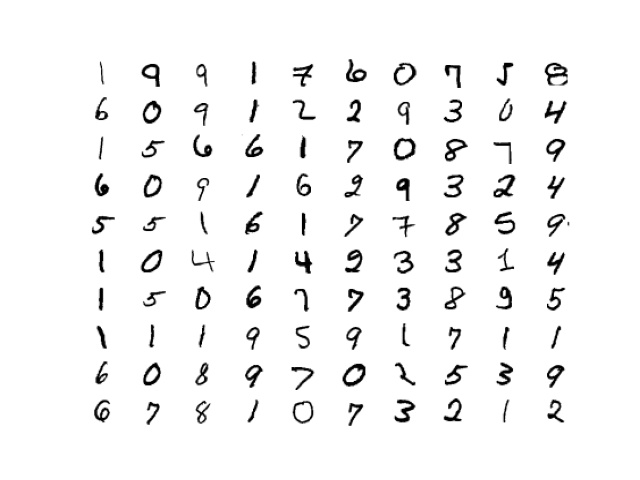 1 9 9 1 7 6 0 7 5 8
6 0 9 1 2 2 9 3 0 4
1 5 6 6 1 7 0 8 7 9
6 0 9 1 6 2 9 3 2 4
5 5 1 6 1 7 7 8 5 9
1 0 4 1 4 2 3 3 1 4
1 5 0 6 7 7 3 8 9 5
1 1 1 9 5 9 1 7 1 1
6 0 8 9 7 0 2 5 3 9
6 7 8 1 0 7 3 2 1 2